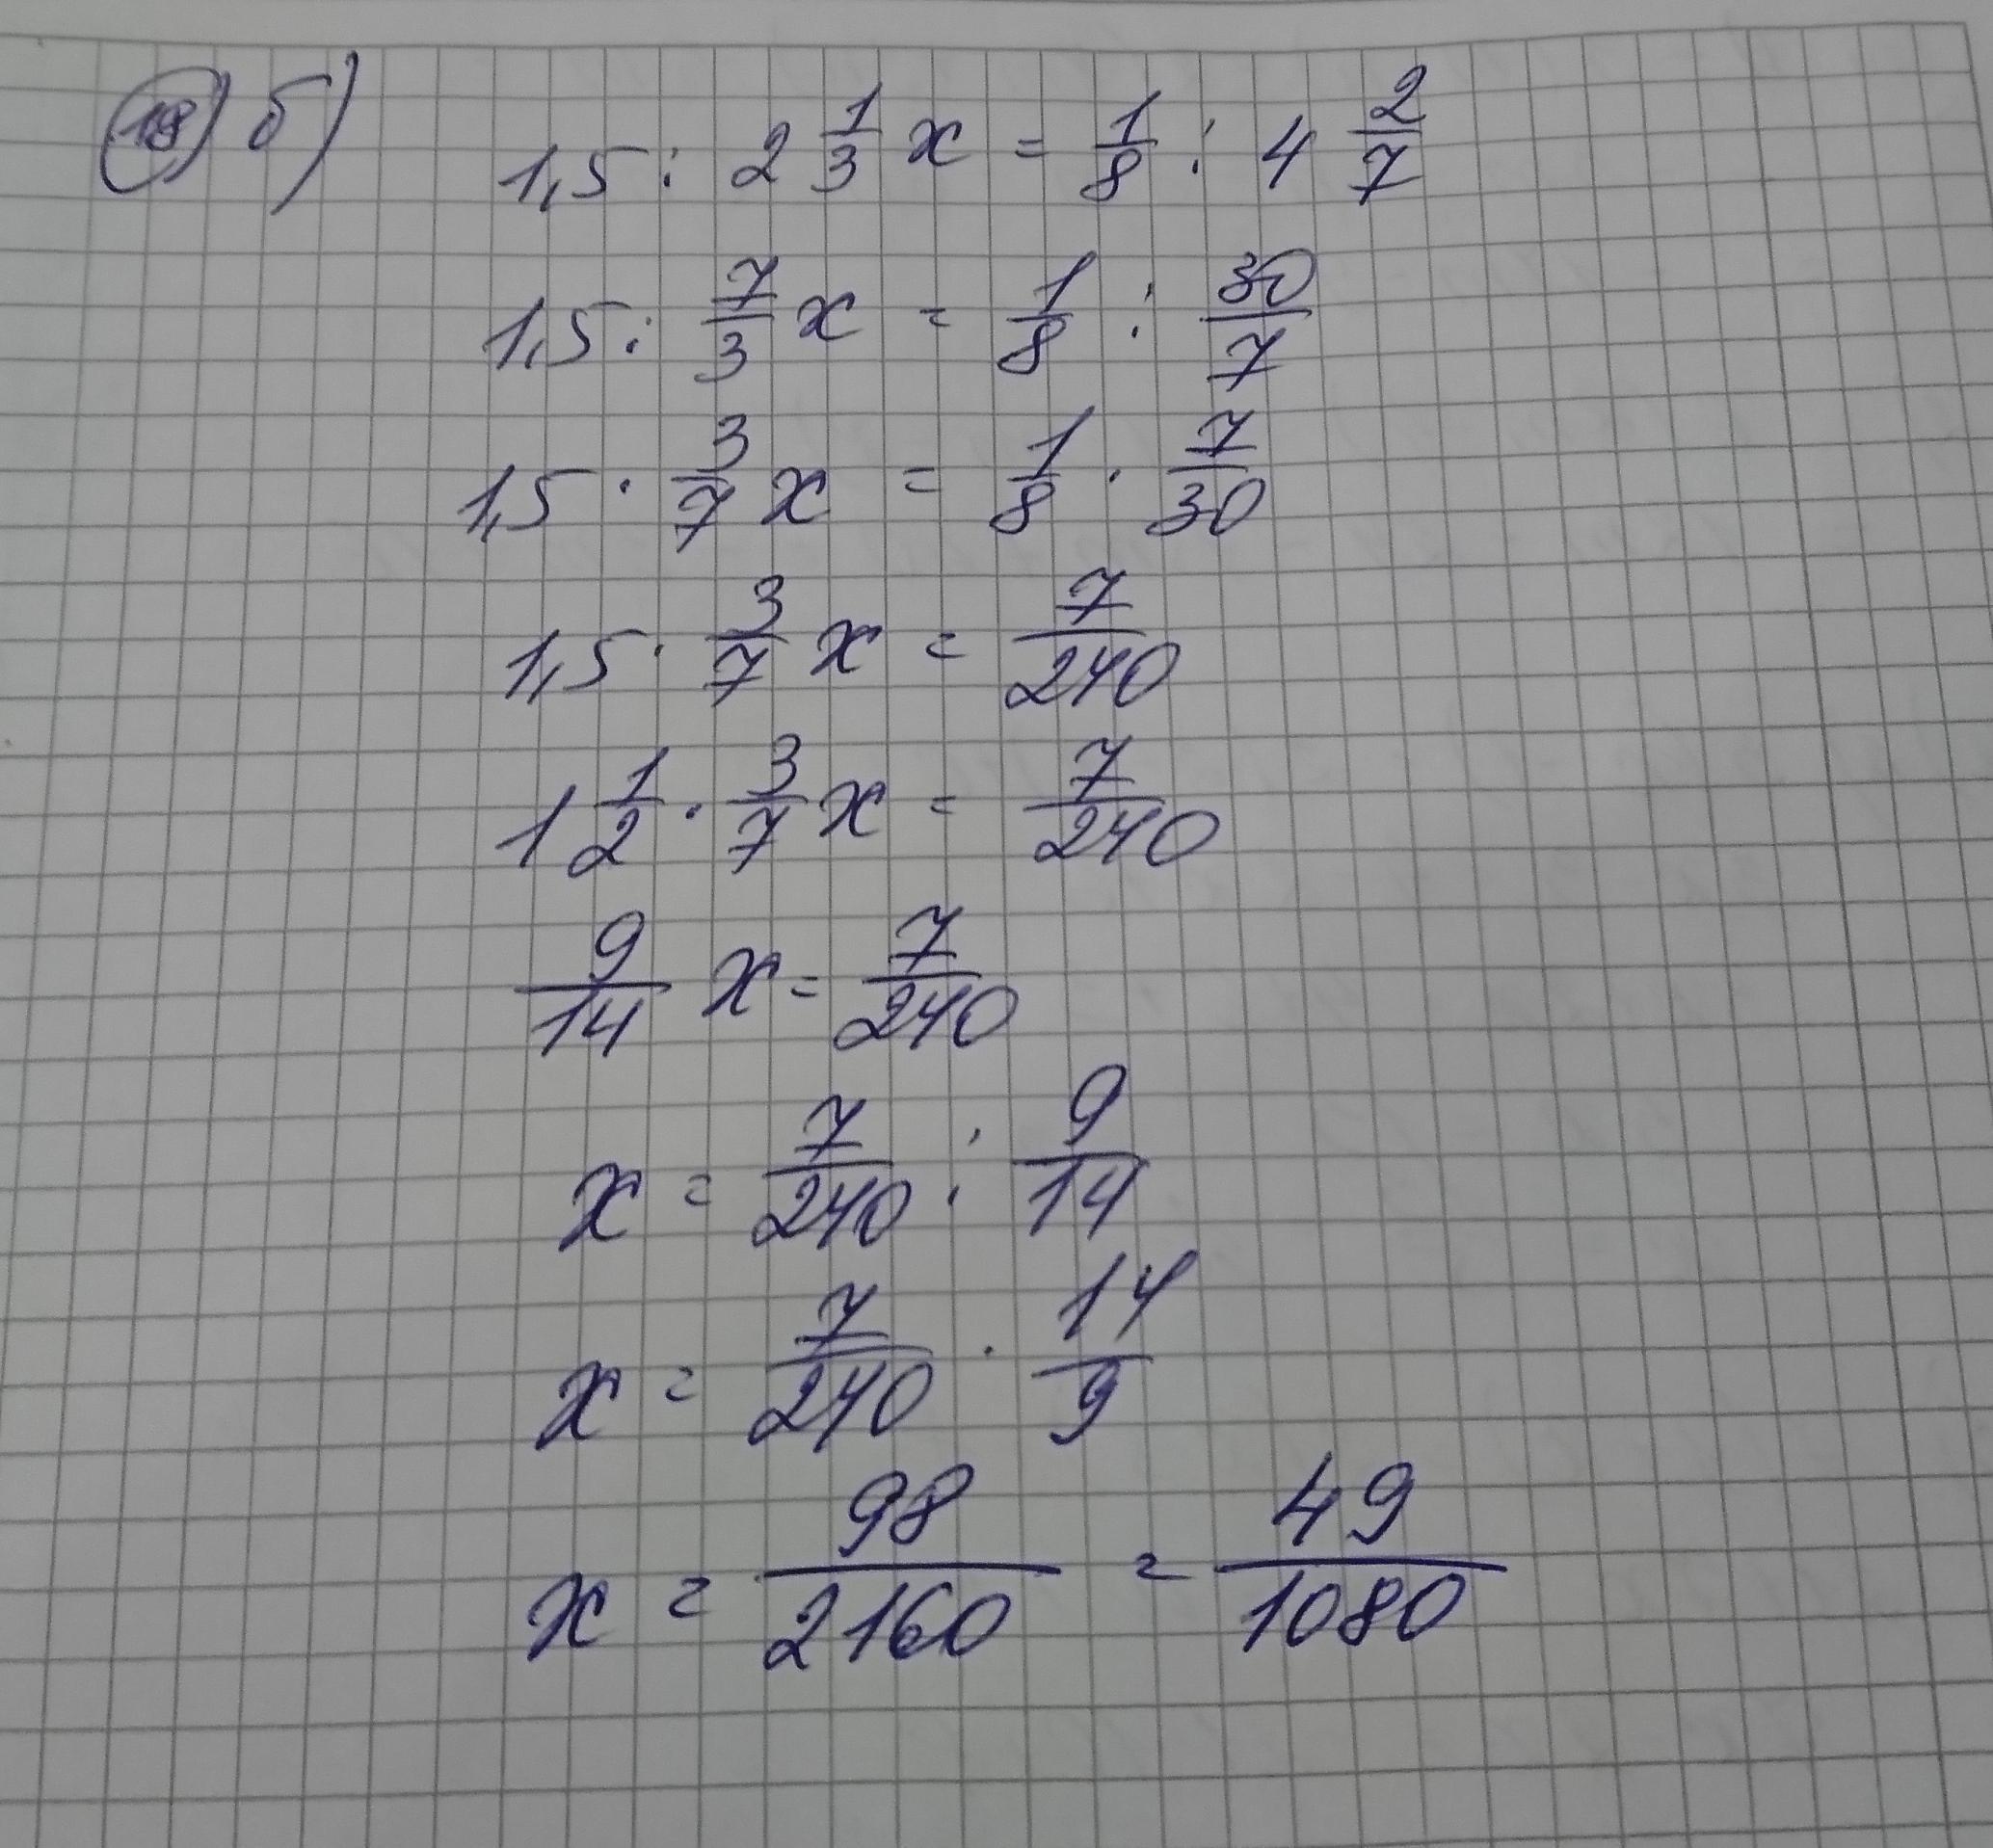 18) б) 1,5 : 2 1/3 x = 1/8 : 4 2/7
1,5 : 7/3 x = 1/8 : 30/7
1,5 · 3/7 x = 1/8 · 7/30
1,5 · 3/7 x = 7/240
1 1/2 · 3/7 x = 7/240
9/14 x = 7/240
x = 7/240 : 9/14
x = 7/240 · 14/9
x = 98/2160 = 49/1080